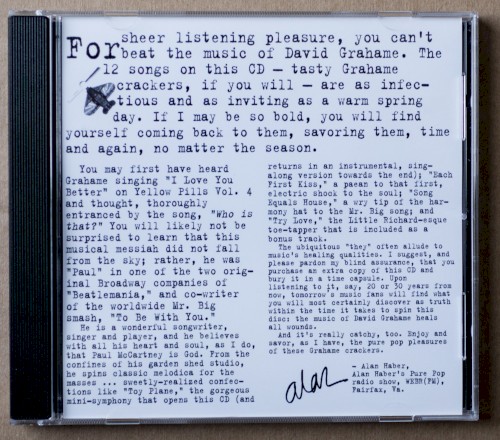 For sheer listening pleasure, you can't
beat the music of David Grahame. The
12 songs on this CD — tasty Grahame
crackers, if you will — are as infec-
tious and as inviting as a warm spring
day. If I may be so bold, you will find
yourself coming back to them, savoring them, time
and again, no matter the season.
You may first have heard
Grahame singing "I Love You
Better" on Yellow Pills Vol. 4
and thought, thoroughly
entranced by the song, "Who is
that?" You will likely not be
surprised to learn that this
musical messiah did not fall
from the sky; rather, he was
"Paul" in one of the two orig-
inal Broadway companies of
"Beatlemania," and co-writer
of the worldwide Mr. Big
smash, "To Be With You."
He is a wonderful songwriter,
singer and player, and he believes
with all his heart and soul, as I do,
that Paul McCartney is God. From the
confines of his garden shed studio,
he spins classic melodica for the
masses ... sweetly-realized confec-
tions like "Toy Plane," the gorgeous
mini-symphony that opens this CD (and
returns in an instrumental, sing-
along version towards the end); "Each
First Kiss," a paean to that first,
electric shock to the soul; "Song
Equals House," a wry tip of the har-
mony hat to the Mr. Big song; and
"Try Love," the Little Richard-esque
toe-tapper that is included as a
bonus track.
The ubiquitous "they" often allude to
music's healing qualities. I suggest, and
please pardon my blind assurance, that you
purchase an extra copy of this CD and
bury it in a time capsule. Upon
listening to it, say, 20 or 30 years from
now, tomorrow's music fans will find what
you will most certainly discover as truth
within the time it takes to spin this
disc: the music of David Grahame heals
all wounds.
And it's really catchy, too. Enjoy and
savor, as I have, the pure pop pleasures
of these Grahame crackers.
alan
— Alan Haber,
Alan Haber's Pure Pop
radio show, WEBR(FM),
Fairfax, Va.